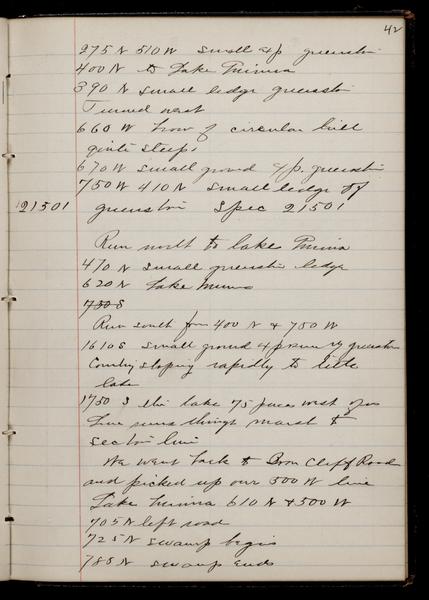 42
275 N 510 W small exp greenston
400 N to Lake Minnie
390 N small ledge greenston
Turned west
660 W brow of circular hill
quite steep
670 W small ground exp. greenston
750 W 410 N small ledge of
21501 greenston Spec 21501
Run north to lake
470 N small greenston ledge
620 N Lake
750 S
Run south from 400 N & 750 W
1610 S small ground exp greenston
Country sloping rapidly to little
lake
1750 S this lake 75 paces west of us
Line runs through marsh to
section line
We went back to Iron Cliff Road
and picked up our 500 W line
Lake 610 N & 500 W
705 N left road
725 N swamp begins
785 N swamp ends